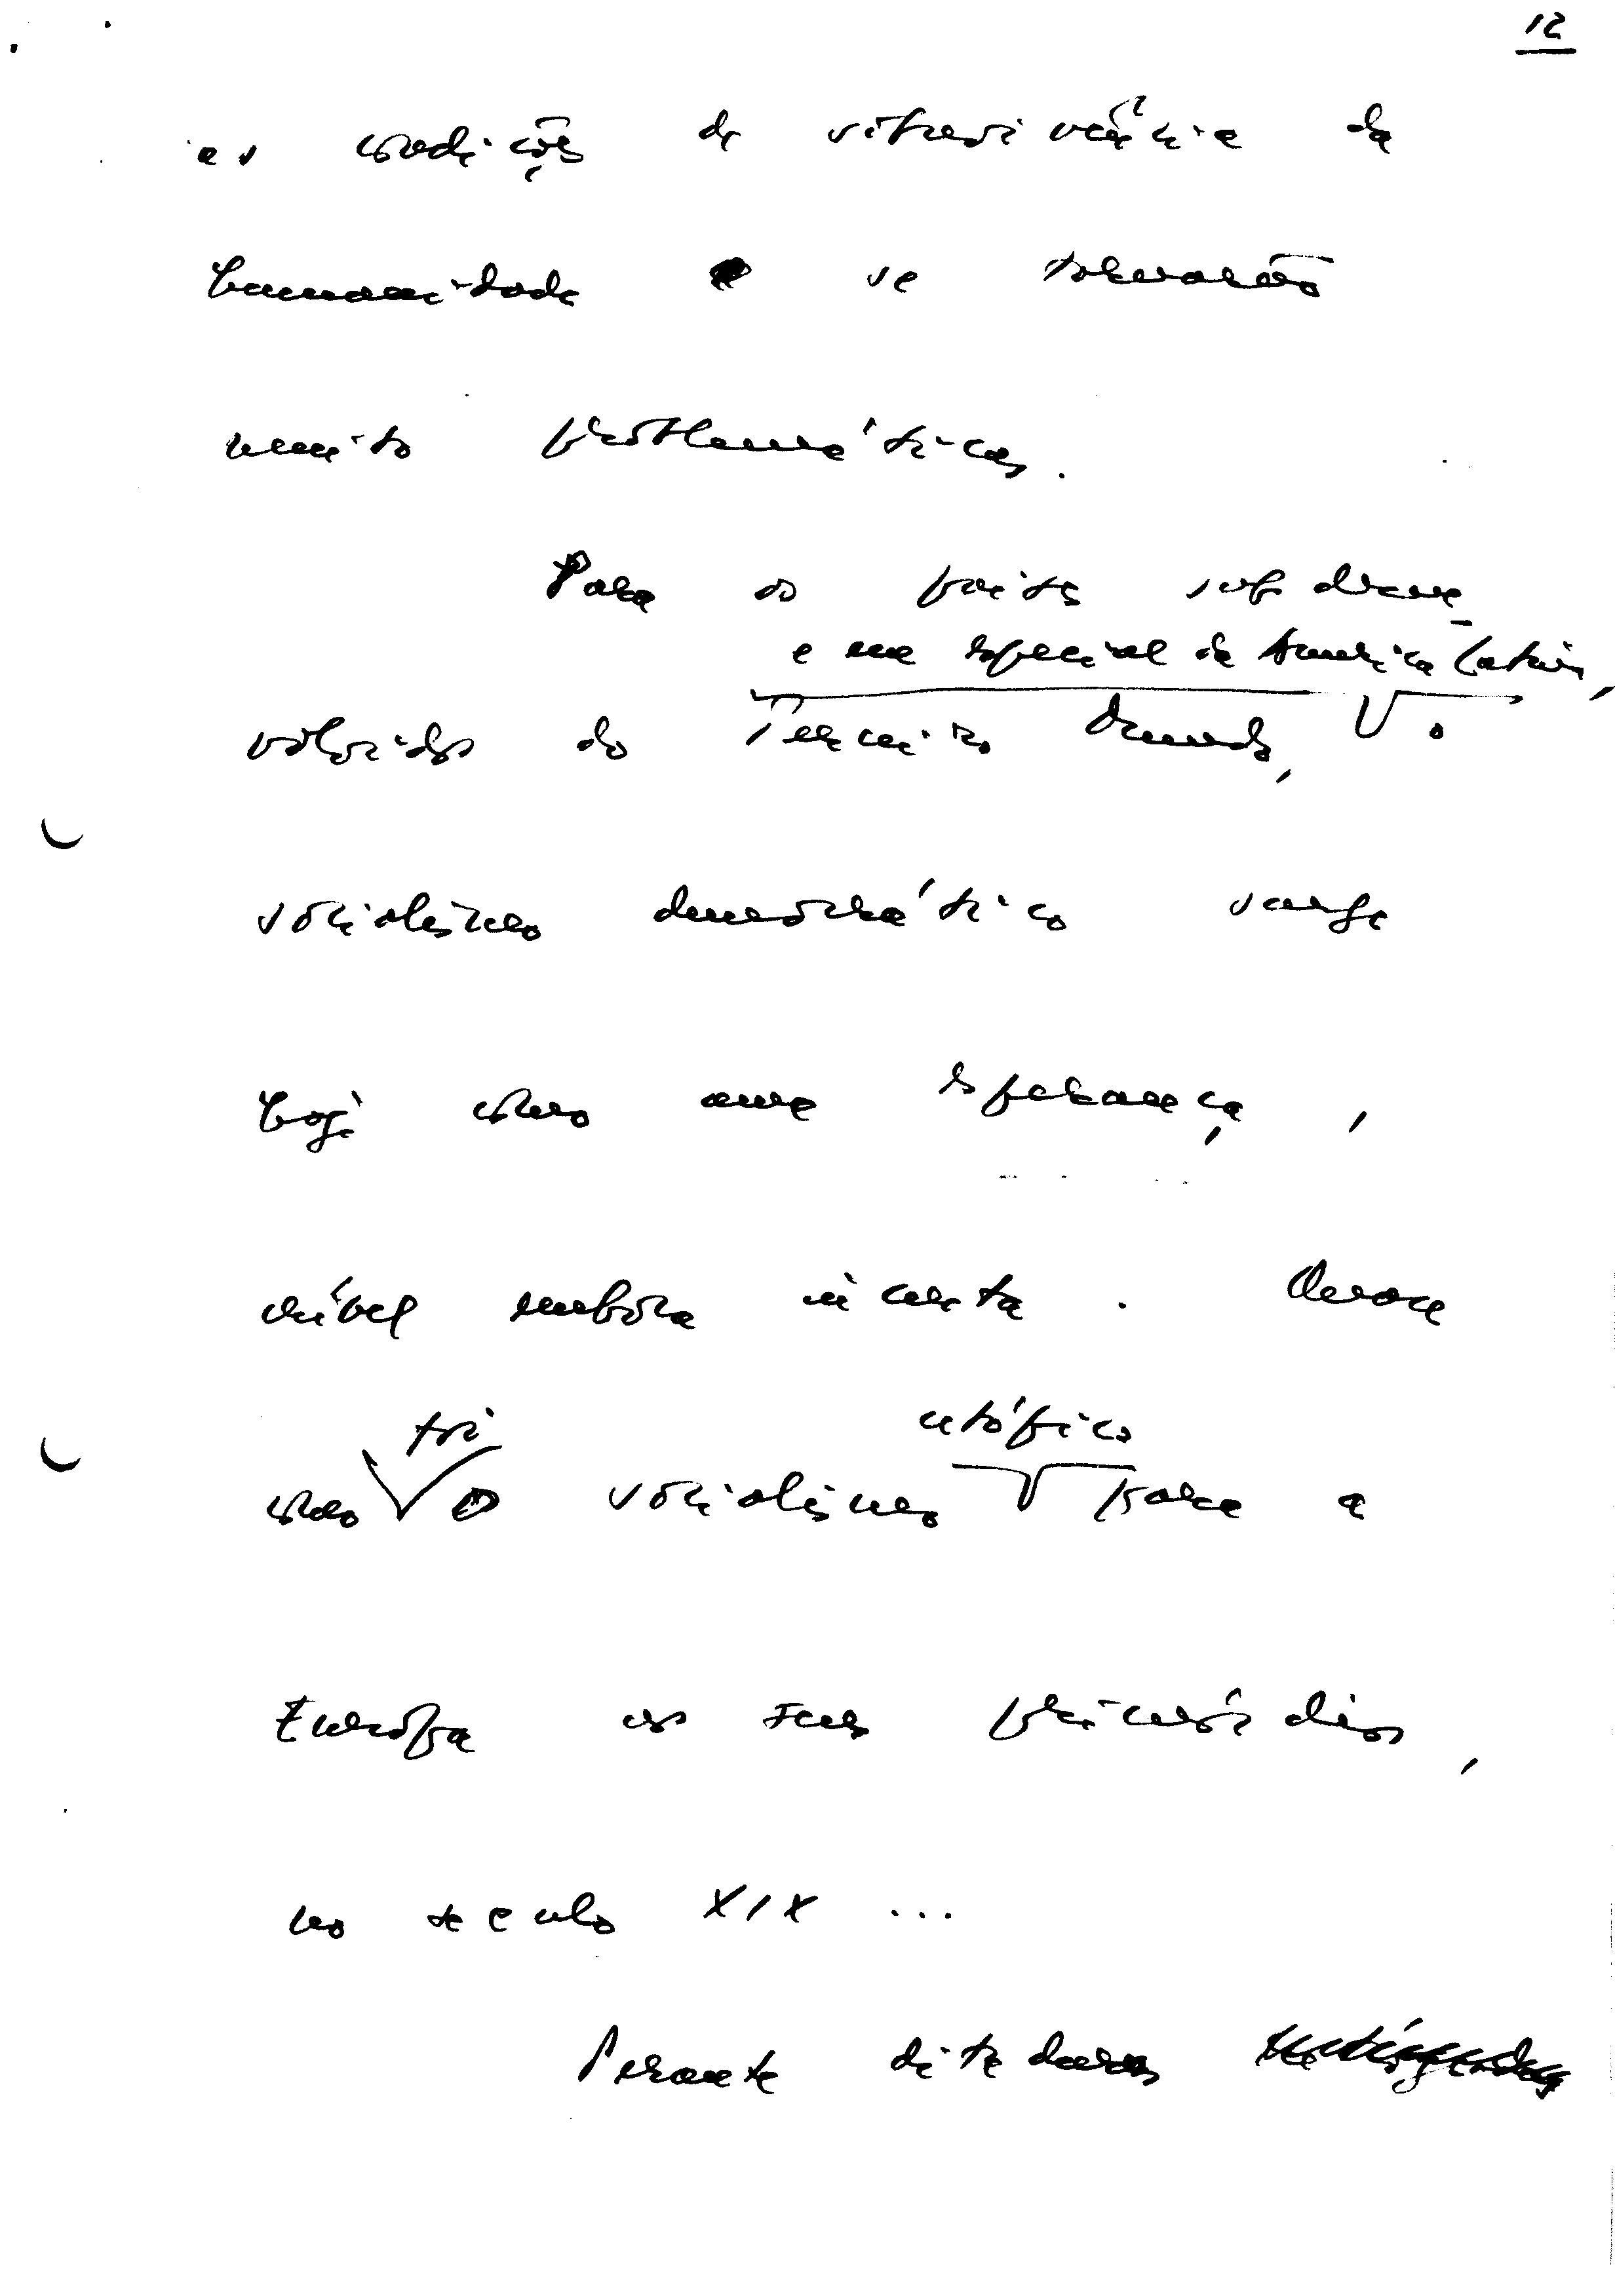 12
as condições de sobrevivência da
humanidade se tornarão
muito problemáticas.
Para os países subdesen-
e em especial da América Latina,
volvidos do Terceiro Mundo, o
socialismo democrático surge
hoje como uma esperança,
embora incerta. Um pouco
foi utópico
como o socialismo para a
Europa nos seus primórdios,
no século XIX ...
Perante ditaduras